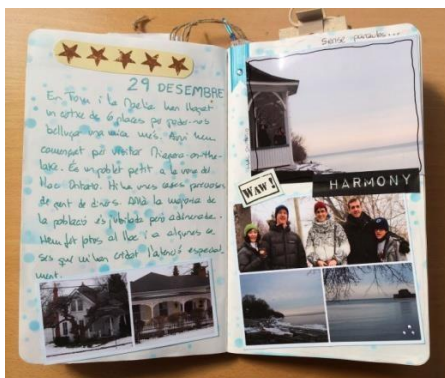 29 DESEMBRE
En Toyn i la Noelia han llogat
un cotxe de 6 places per poder-nos
bellugar una mica més. Avui hem
començat per visitar Niagara-on-the-
lake. És un poblet petit a la vora del
llac Ontario. Hi ha unes cases precioses
de gent de diners. Allà la majoria de
la població és jubilada però adinerada.
Hem fet fotos al llac i a algunes ca-
ses que m'han cridat l'atenció especial-
ment.
Sense paraules...
WAW!
HARMONY